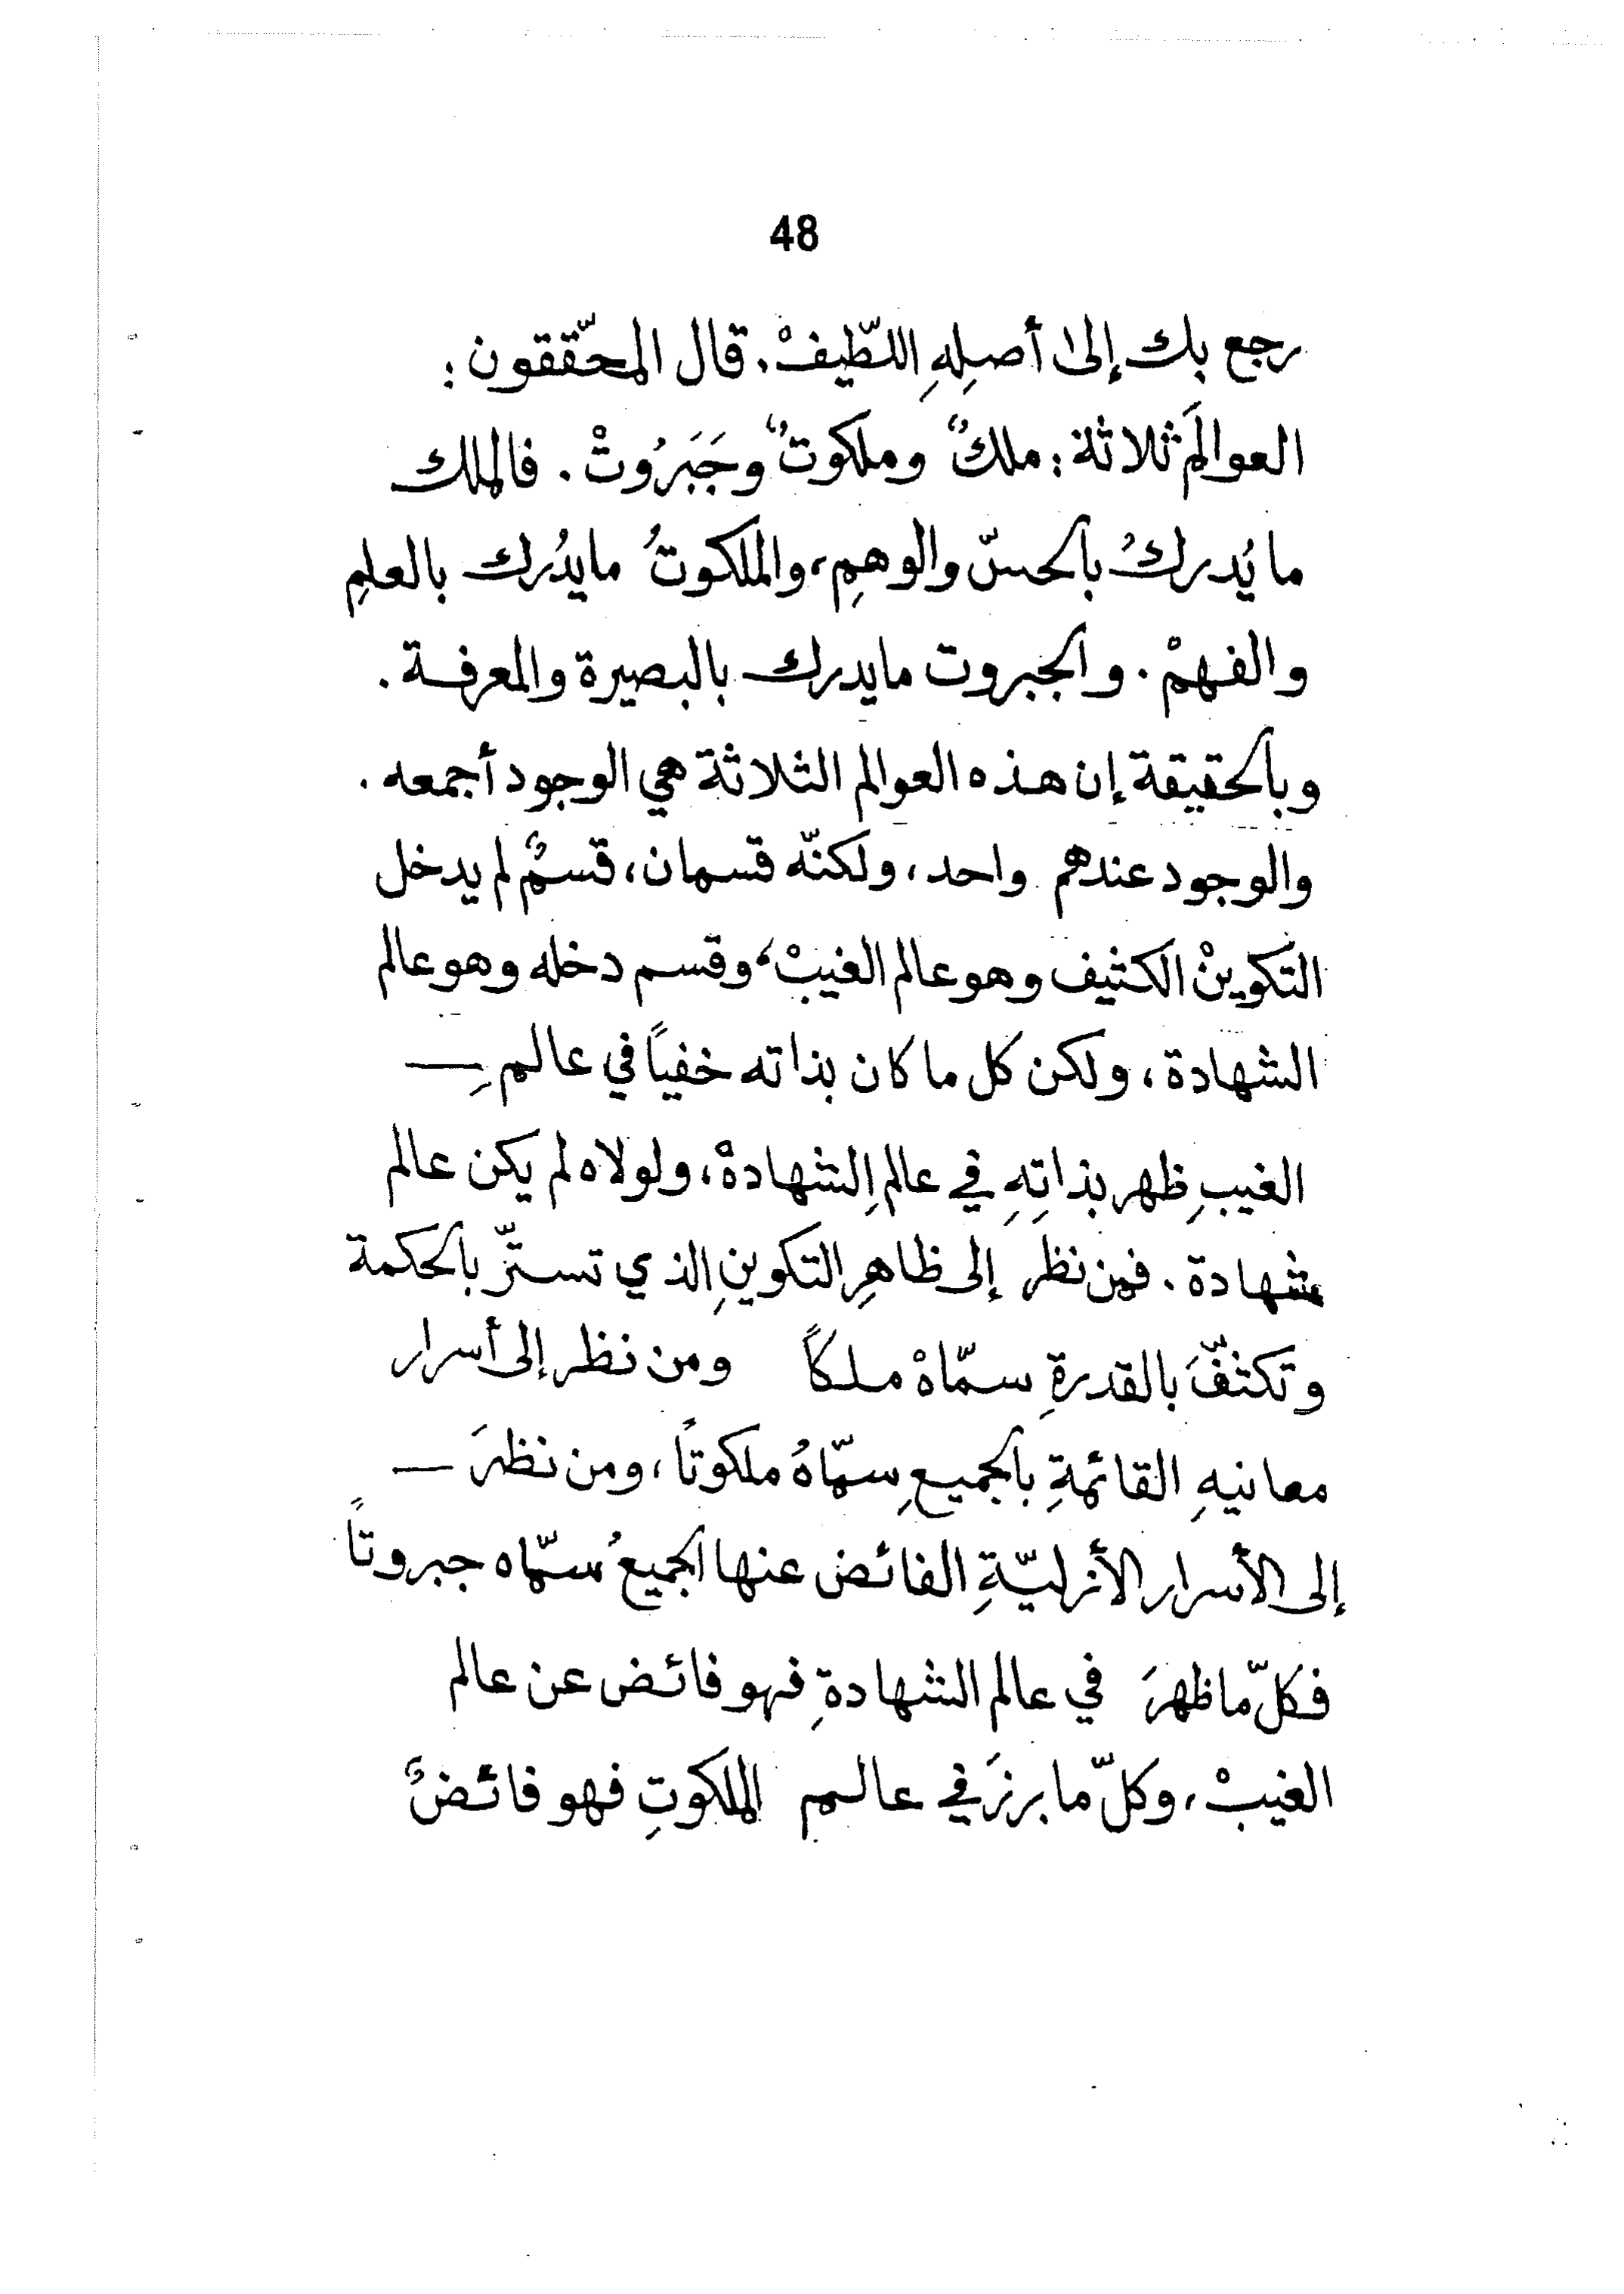 48
رجع بك إلى أصلِهِ اللّطيفْ. قال المحقّقون :
العوالَم ثلاثة : ملكٌ وملكوتٌ وجَبَرُوتْ . فالملك
ما يُدركُ بالحسّ والوهمِ، والملكوتُ مايدُرك بالعلمِ
والفهمْ . والجبروت مايدرك بالبصيرة والمعرفة .
وبالحقيقة إن هذه العوالم الثلاثة هي الوجود أجمعه .
والوجود عندهم واحد، ولكنّه قسمان، قسمٌ لم يدخل
التكوينْ الكثيف وهو عالم الغيبْ، وقسم دخله وهو عالم
الشهادة، ولكن كل ما كان بذاته خفياً في عالمِ —
الغيبِ ظهر بذاتِهِ في عالمِ الشهادةْ، ولولاه لم يكن عالم
شهادة . فمن نظر إلى ظاهرِ التكوينِ الذي تستّر بالحكمة
وتكثّفَ بالقدرةِ سمّاهْ ملكاً ومن نظر إلى أسرار
معانيهِ القائمةِ بالجميعِ سمّاهُ ملكوتاً، ومن نظرَ —
إلى الأسرار الأزليّةِ الفائض عنها الجميعُ سمّاه جبروتاً
فكلّ ما ظهرَ في عالم الشهادةِ فهو فائض عن عالم
الغيبْ، وكلّ ما برزَ في عالم الملكوتِ فهو فائضٌ